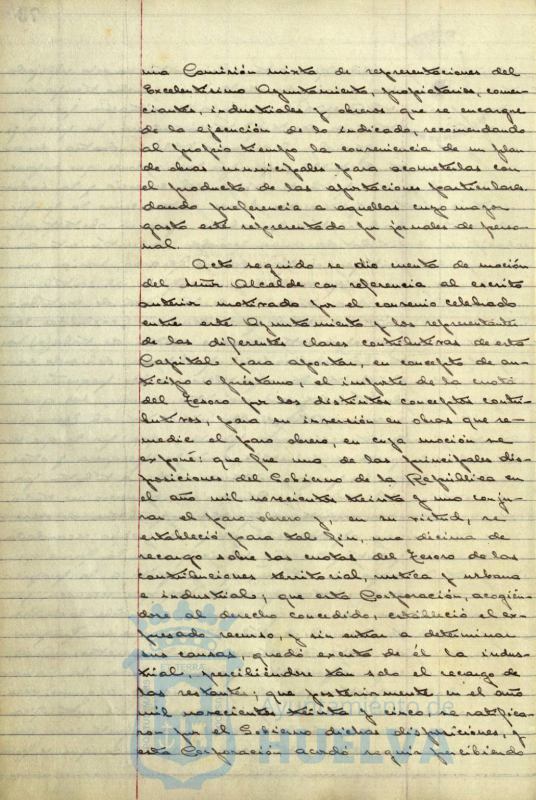 una Comisión mixta de representaciones del
Excelentísimo Ayuntamiento, propietarios, comer-
ciantes, industriales y obreros que se encargue
de la ejecución de lo indicado, recomendando
al propio tiempo la conveniencia de un plan
de obras municipales para acometerlas con
el producto de las aportaciones particulares
dando preferencia a aquellas cuyo mayor
gasto esté representado por jornales de perso-
nal
Acto seguido se dio cuenta de moción
del Señor Alcalde con referencia al escrito
anterior motivado por el convenio celebrado
entre este Ayuntamiento y los representantes
de las diferentes clases contributivas de esta
Capital para aportar, en concepto de an-
ticipo o préstamo, el importe de la cuota
del Tesoro por los distintos conceptos contri-
butivos, para su inversión en obras que re-
medie el paro obrero, en cuya moción se
expone: que fue una de las principales dis-
posiciones del Gobierno de la República en
el año mil novecientos treinta y uno conju-
rar el paro obrero y, en su virtud, se
estableció para tal fin, una décima de
recargo sobre las cuotas del Tesoro de las
contribuciones territorial, rústica y urbana
e industrial; que esta Corporación, acogién-
dose al derecho concedido, estableció el ex-
presado recurso, y sin entrar a determinar
sus causas, quedó exenta de él la indus-
trial, percibiéndose tan solo el recargo de
las restantes; que posteriormente en el año
mil novecientos treinta y cinco, se ratifica-
ron por el Gobierno dichas disposiciones, y
esta Corporación acordó seguir percibiendo
Ayuntamiento de
HUELVA